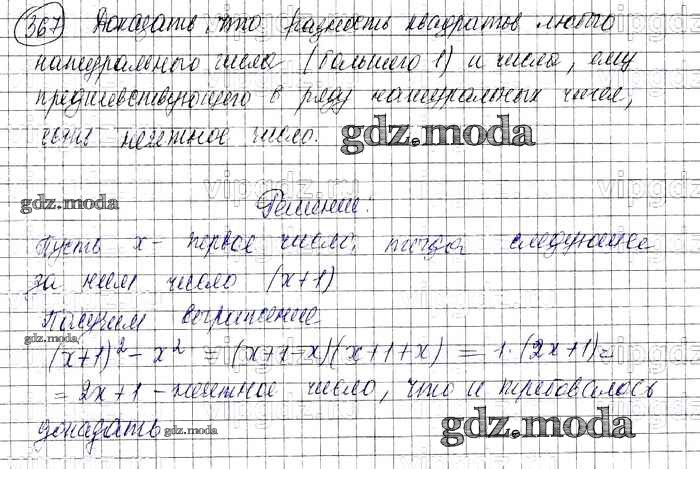 367 Доказать, что разность квадратов любого
натурального числа (большего 1) и числа, ему
предшествующего в ряду натуральных чисел,
есть нечетное число. gdz.moda
gdz.moda Решение:
Пусть x - первое число, тогда следующее
за ним число (x+1)
Получим выражение
gdz.moda
(x+1)² - x² = (x+1-x)(x+1+x) = 1·(2x+1)=
= 2x+1 - нечетное число, что и требовалось
доказать gdz.moda
gdz.moda